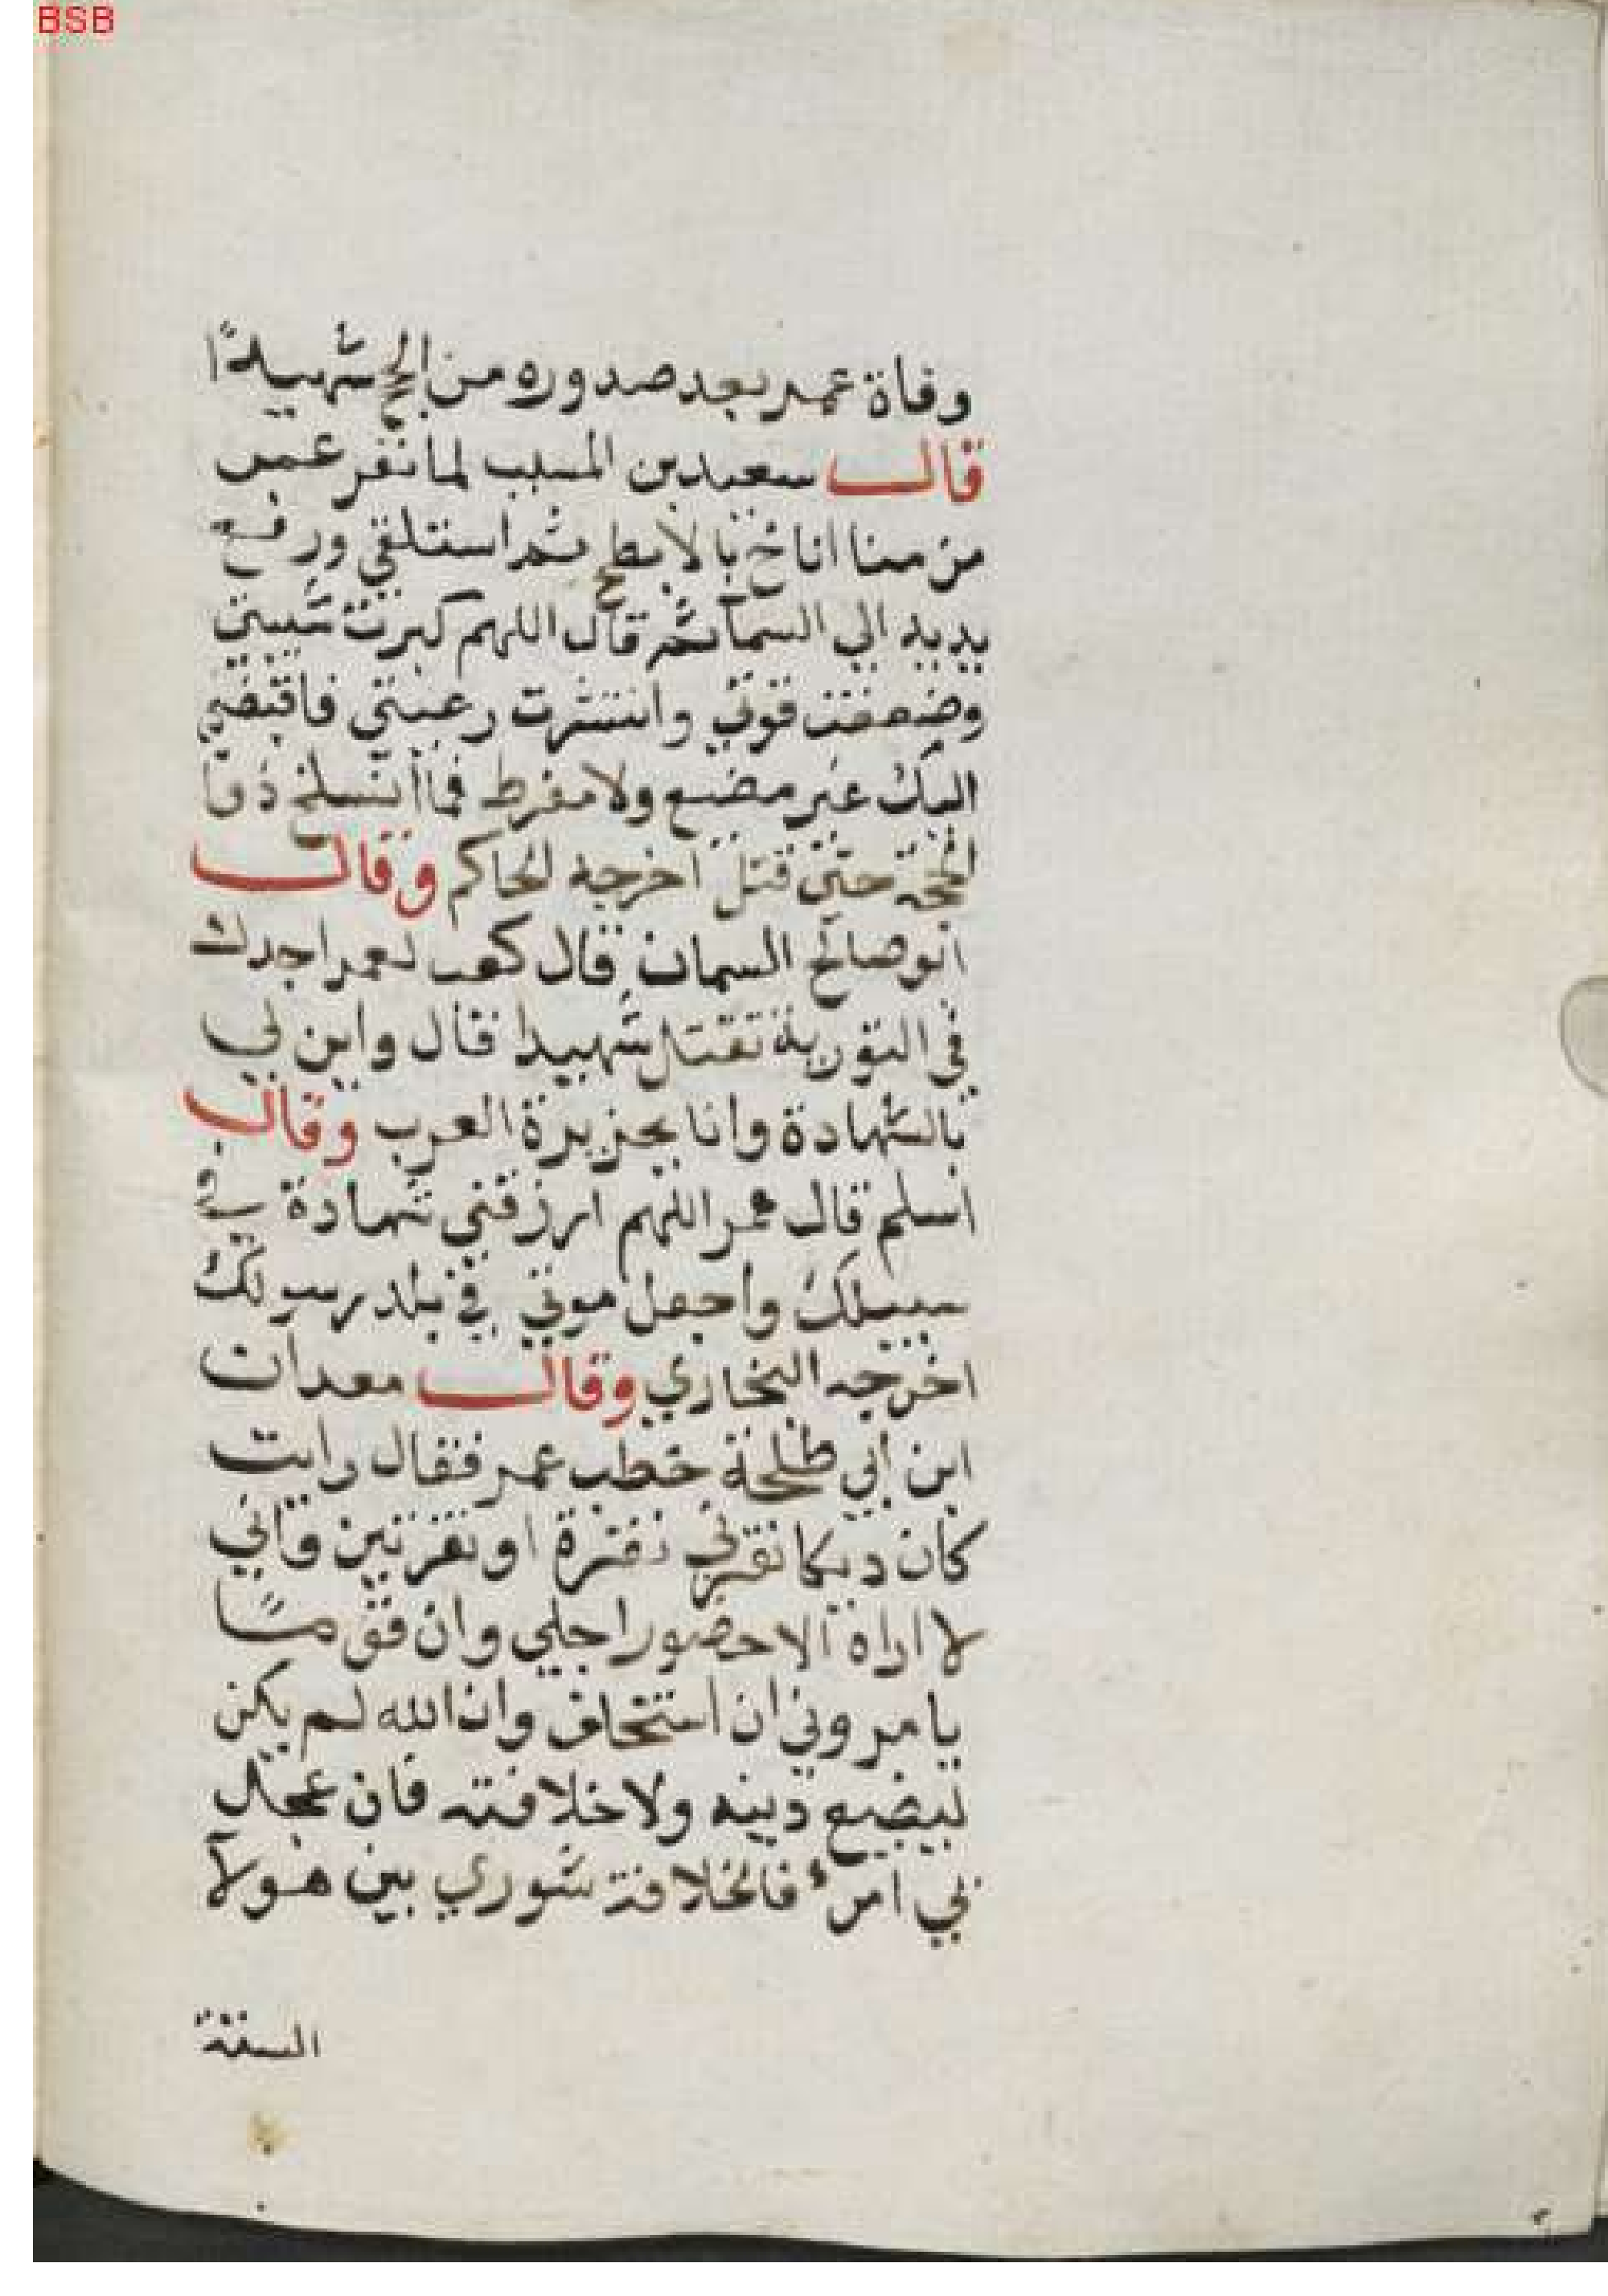 BSB
وفاة عمر بعد صدوره من الحج شهيدًا
قال سعيد بن المسيب لما نفر عمر
من منا اناخ بالابطح ثم استلقي ورفع
يديه الي السما ثم قال اللهم كبرت شيبتي
وضعفت قوتي وانتشرت رعيتي فاقبضني
اليك غير مضيع ولا مفرط فما انسلخ ذوا
الحجة حتي قتل اخرجه الحاكم وقال
ابو صالح السمان قال كعب لعمر اجدك
في التورية تقتل شهيدا قال واين لي
بالشهادة وانا بجزيرة العرب وقال
اسلم قال عمر اللهم ارزقني شهادة في
سبيلك واجعل موتي في بلد رسولك
اخرجه البخاري وقال معدان
ابن ابي طلحة خطب عمر فقال رايت
كان ديكا نقرني نقرة او نقرتين واني
لا اراه الا حضور اجلي وان قوما
يامروني ان استخلف وان الله لم يكن
ليضيع دينه ولا خلافته فان عجل
بي امرء فالخلافة شوري بين هولآ
الستة